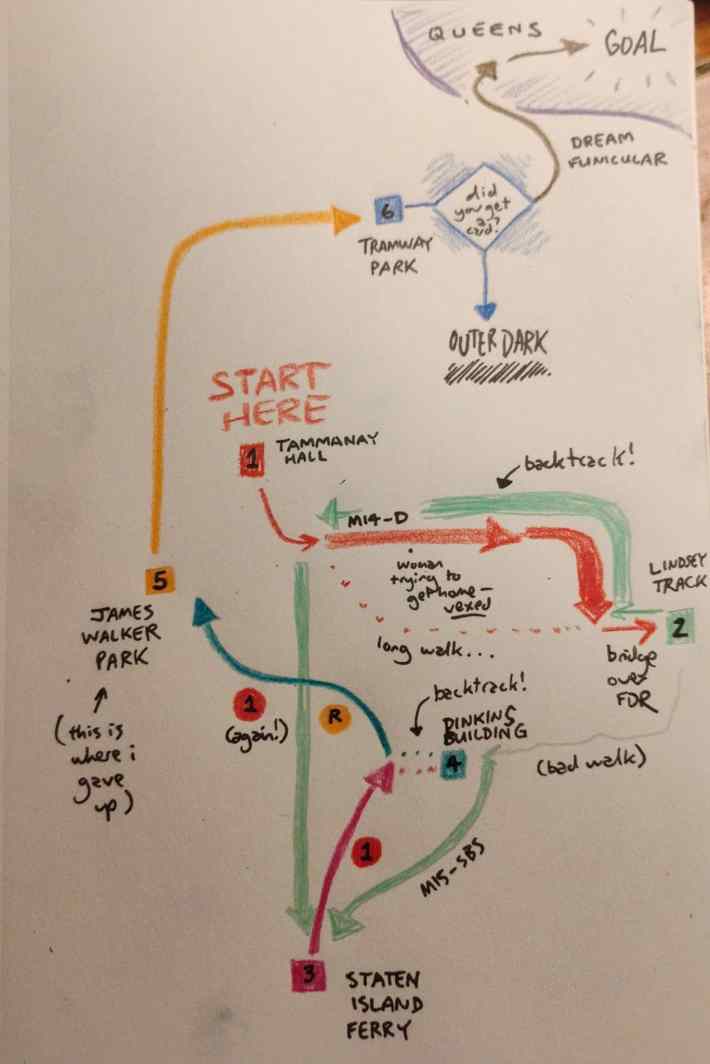 QUEENS
GOAL
DREAM
FUNICULAR
did
you get
card?
6
TRAMWAY
PARK
OUTER DARK
START
HERE
1
TAMMANAY
HALL
backtrack!
M14-D
woman
trying to
get home -
vexed
LINDSEY
TRACK
2
long walk...
bridge
over
FDR
5
JAMES
WALKER
PARK
(this is
where i
gave
up)
1
(again!)
R
backtrack!
DINKINS
BUILDING
4
(bad walk)
1
M15-SBS
3
STATEN
ISLAND
FERRY